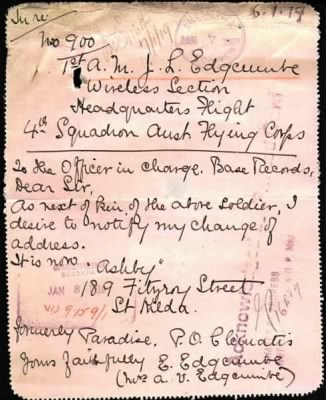 In re
6.1.19
No 900
1st A. M. J. L. Edgcumbe
Wireless Section
Headquarters Flight
4th Squadron Aust Flying Corps
To the Officer in charge. Base Records,
Dear Sir,
As next of Kin of the above Soldier, I
desire to notify my change of
address.
It is now "Ashby"
JAN 8
189 Fitzroy Street
St Kilda.
formerly Paradise, P.O. Clematis
Yours faithfully E. Edgcumbe
(Mrs A. V. Edgcumbe)